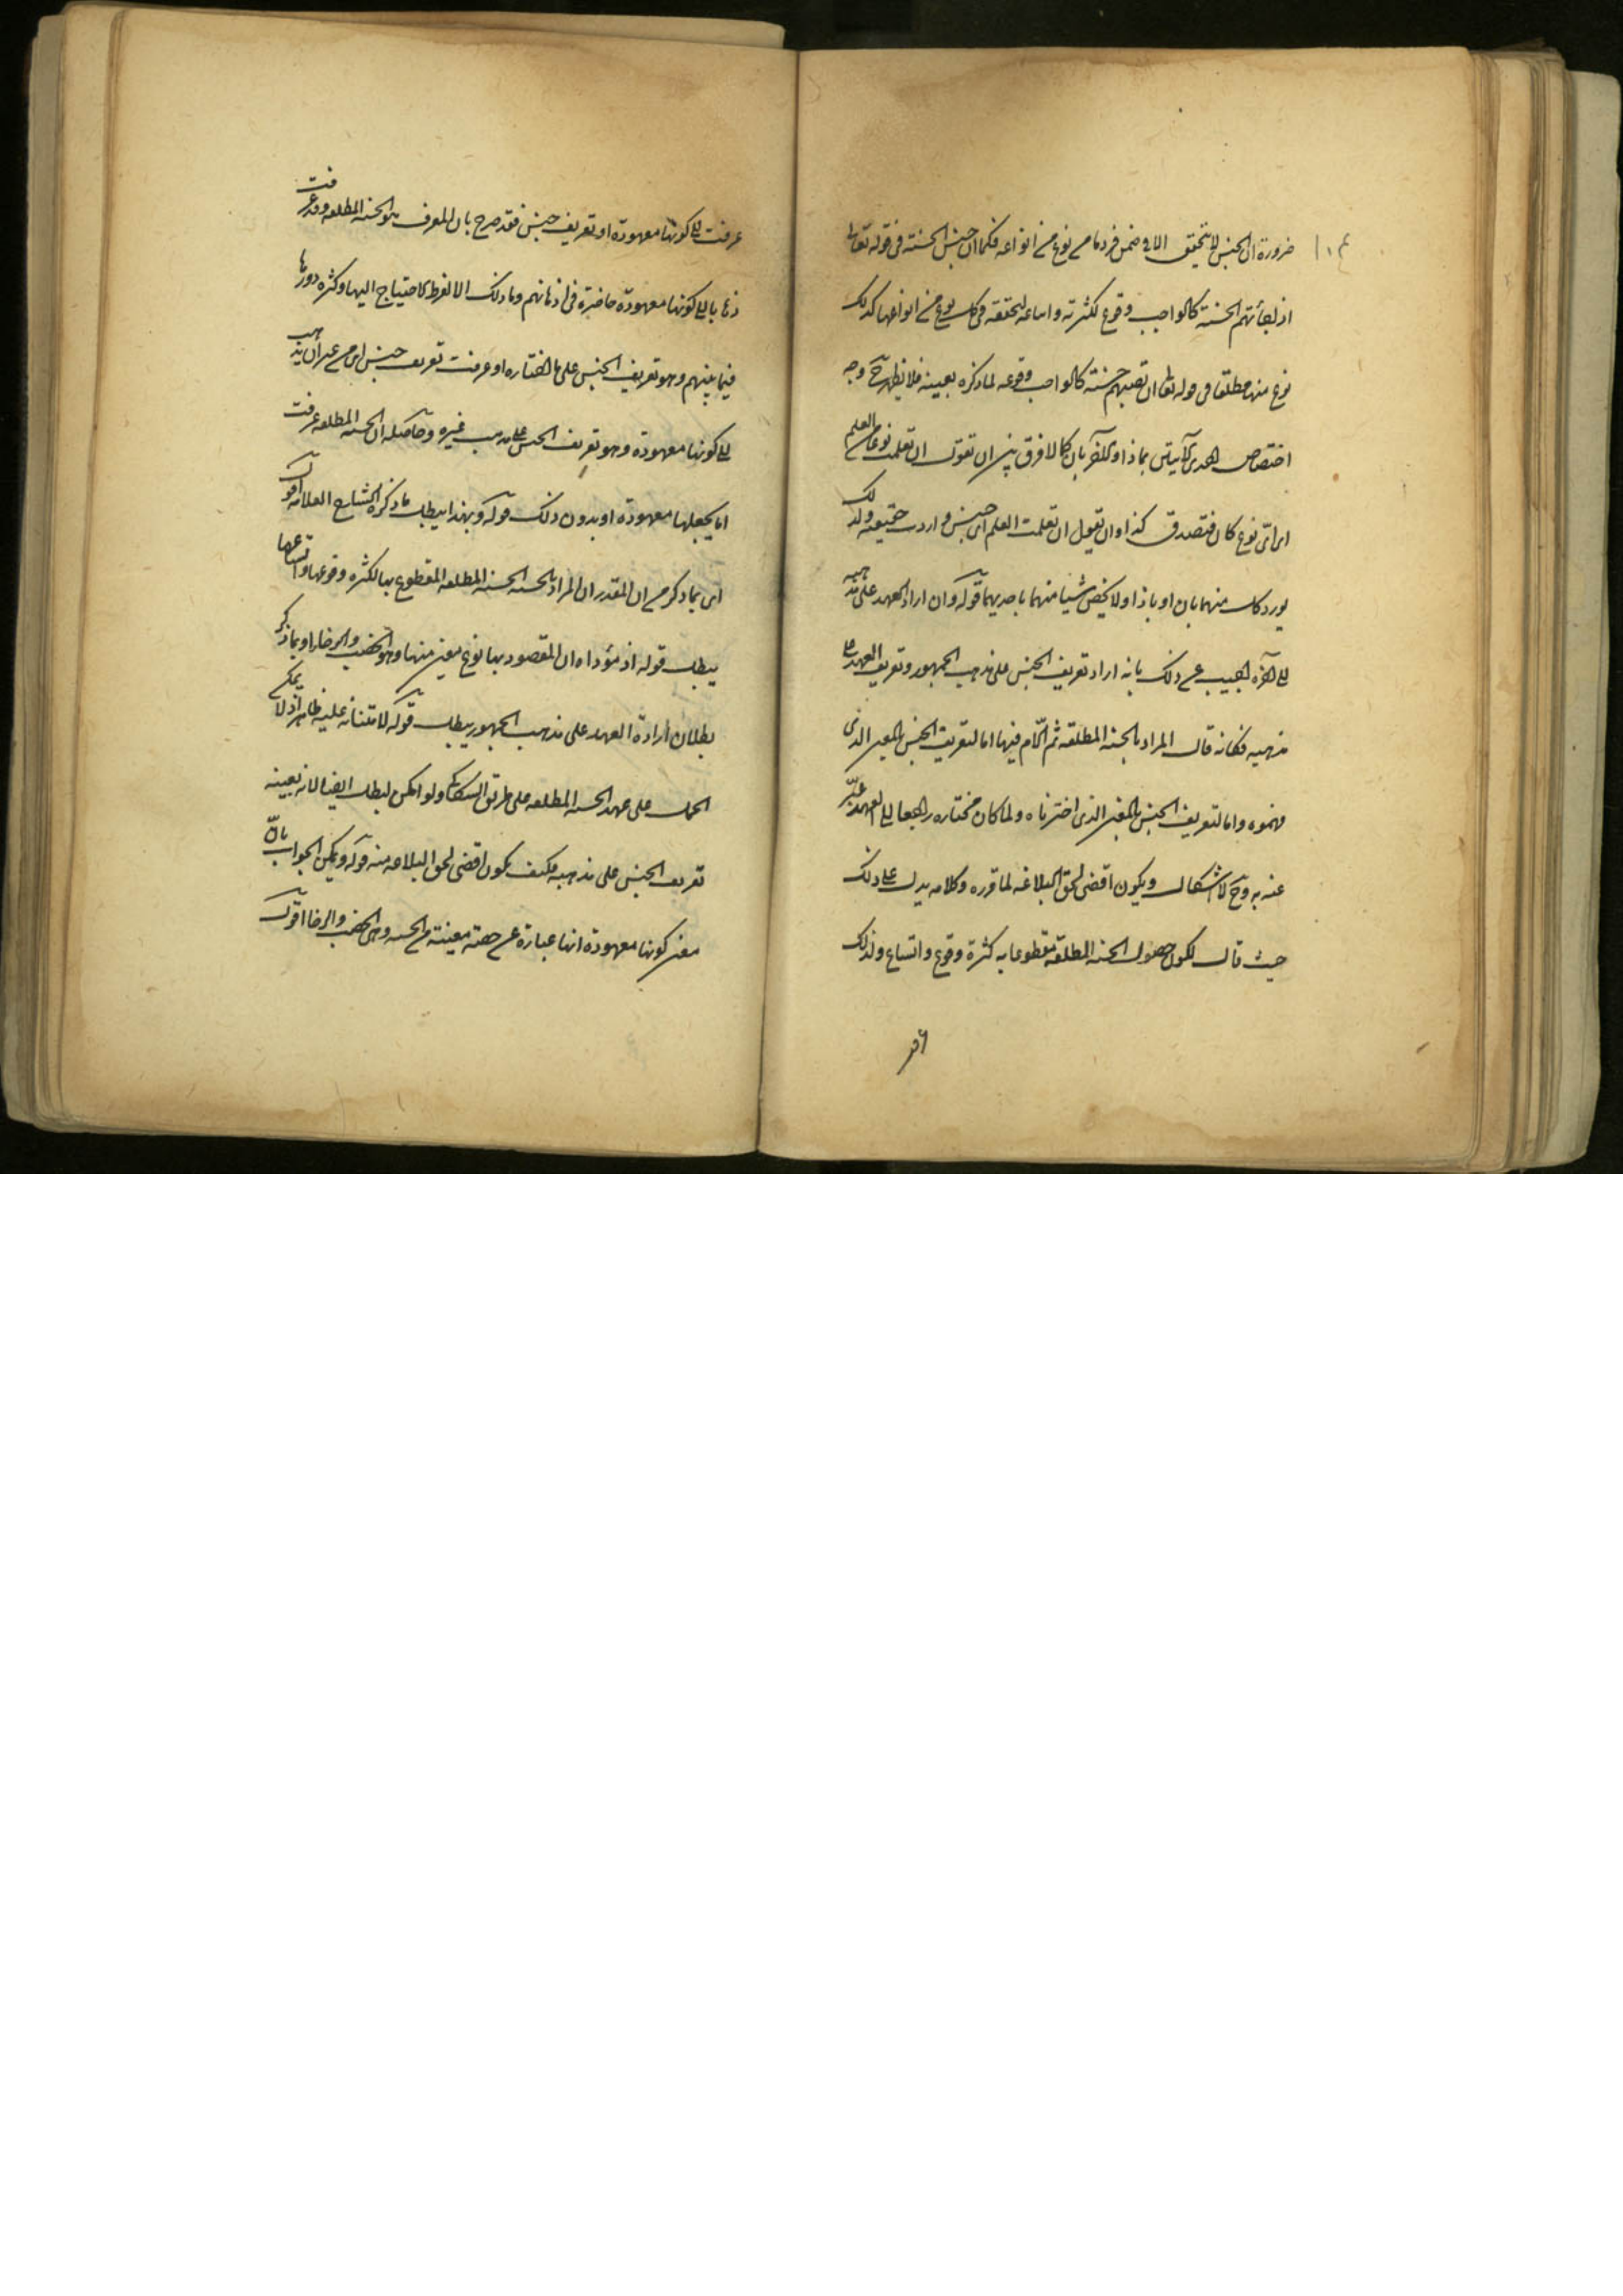 ضرورة ان الجنس لا يتحقق الا فى ضمن فرد ما من نوع من انواعه فكما ان جنس الحسنة فى قوله تعالى
اذا جائتهم الحسنة كالواجب وقوع لكثرته واتساعه لتحققه فى كل نوع من انواعها كذلك
نوع منها مطلقا فى قوله تعالى ان تصبهم حسنة كالواجب وقوعه لما ذكره بعينه فلا يظهر ح وجه
اختصاص احدى الآيتين بماذا والاخرى بان كما لا فرق بين ان تقول ان تعلمت نوعا من العلم
اى اىّ نوع كان فتصدق كذا وان تقول ان تعلمت العلم اى جنس واردت حقيقته ولك
يورد كل منهما بان او باذا ولا يخص شيا منهما باحديهما قوله وان اراد العهد على مذهبه
الى آخره اجيب عن ذلك بانه اراد تعريف الجنس على مذهب الجمهور وتعريف العهد على
مذهبه فكانه قال المراد بالحسنة الحسنة المطلقة ثم اللام فيها اما لتعريف الجنس بالمعنى الذى
فهموه واما لتعريف الجنس بالمعنى الذى اخترناه ولما كان مختاره راجعا الى العهد عبّر
عنه به وح لا اشكال ويكون اقضى لحق البلاغه لما قرره وكلامه يدل على ذلك
حيث قال لكون حصول الحسنة المطلقة مقطوعا به كثرة وقوع واتساع ولذلك
عرفت الى كونها معهودة او تعريف جنس فقد صرح بان المعرف هو الحسنة المطلقه وقد عرفت
ذهابا الى كونها معهودة حاضرة فى اذهانهم وما ذلك الا لفرط الاحتياج اليها وكثره دورها
فيما بينهم وهو تعريف الجنس على ما اختاره او عرفت تعريف جنس اى من غير ان يذهب
الى كونها معهودة وهو تعريف الجنس على مذهب غيره وحاصله ان الحسنه المطلقه عرفت
اما بجعلها معهودة او بدون ذلك قوله وبهذا يبطل ما ذكره الشارح العلامه اقول
اى بما ذكر من ان المقدر ان المراد بالحسنه الحسنه المطلقه المقطوع بها لكثره وقوعها واتساعها
يبطل قوله اذ مؤداه ان المقصود بها نوع معين منها وهو الخصب والرخاء او بما ذكر
بطلان ارادة العهد على مذهب الجمهور يبطل قوله لابتنائه عليه ظاهرا اذ لا يمكن
الحمل على عهد الحسنه المطلقه على طريق السكاكى ولو امكن لبطل ايضا لانه بعينه
تعريف الجنس على مذهبه فكيف يكون اقضى لحق البلاغه منه قوله ويمكن الجواب بانّ
معنى كونها معهودة انها عبارة عن حصة معينة من الحسنه وهى الخصب والرخا اقول